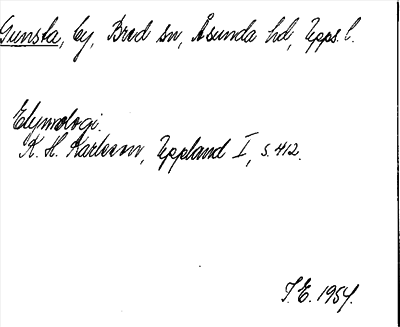 Gunsta, by, Bred sn, Åsunda hd, Upps. l.
Etymologi.
K. H. Karlsson, Uppland I, s. 412.
I. E. 1954.